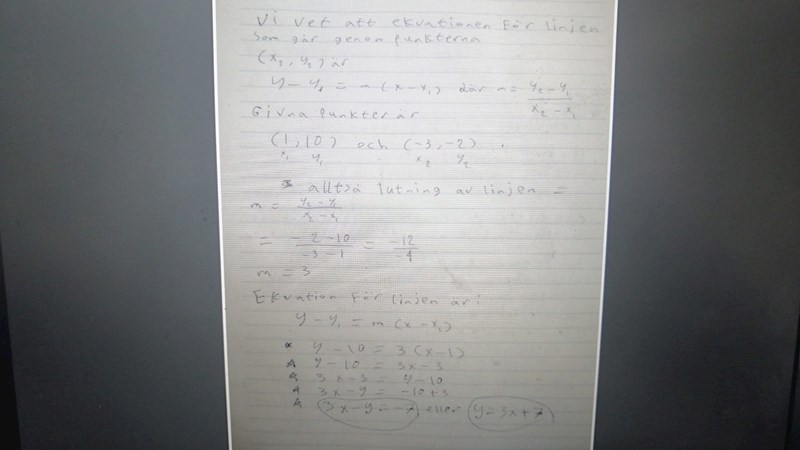 Vi vet att ekvationen För linjen
som går genom punkterna
(x₂, y₂) är
y - y₁ = m (x - x₁) där m = y₂ - y₁ / x₂ - x₁
Givna punkter är
(1, 10) och (-3, -2).
x₁ y₁ x₂ y₂
alltså lutning av linjen =
m = y₂ - y₁ / x₂ - x₁
= -2 - 10 / -3 - 1 = -12 / -4
m = 3
Ekvation För linjen är:
y - y₁ = m (x - x₁)
y - 10 = 3 (x - 1)
y - 10 = 3x - 3
3x - 3 = y - 10
3x - y = -10 + 3
3x - y = -7 eller y = 3x + 7